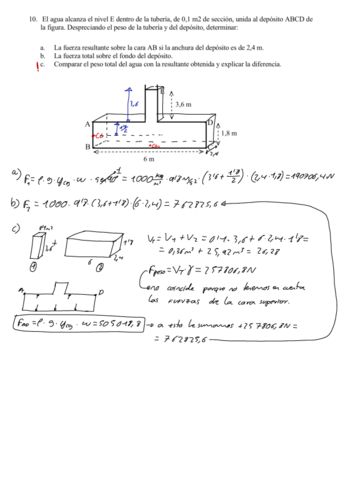 10. El agua alcanza el nivel E dentro de la tubería, de 0,1 m2 de sección, unida al depósito ABCD de
la figura. Despreciando el peso de la tubería y del depósito, determinar:
a. La fuerza resultante sobre la cara AB si la anchura del depósito es de 2,4 m.
b. La fuerza total sobre el fondo del depósito.
c. Comparar el peso total del agua con la resultante obtenida y explicar la diferencia.
E
3,6
3,6 m
A
D
1,8 m
B
6 m
2,4
a) F = ρ·g·ycg·w = 1000 kg/m³ · 9'8 m/s² · (3'6 + 1'8/2) · (2,4·1,8) = 190706,4N
b) F = 1000·9'8·(3,6+1'8)·(6·2,4) = 762825,6
c)
3,6
+
1'8
6
2,4
1
2
VT = V1 + V2 = 0'1·3,6 + 6·2,4·1'8 =
= 0,36m³ + 25,92m³ = 26,28
Fpeso = VT·γ = 257806,8N
no coincide porque no tenemos en cuenta
las fuerzas de la cara superior.
A
D
FAD = ρ·g·ycg·w = 505018,8 → a esto le sumamos +257806,8N =
= 762825,6